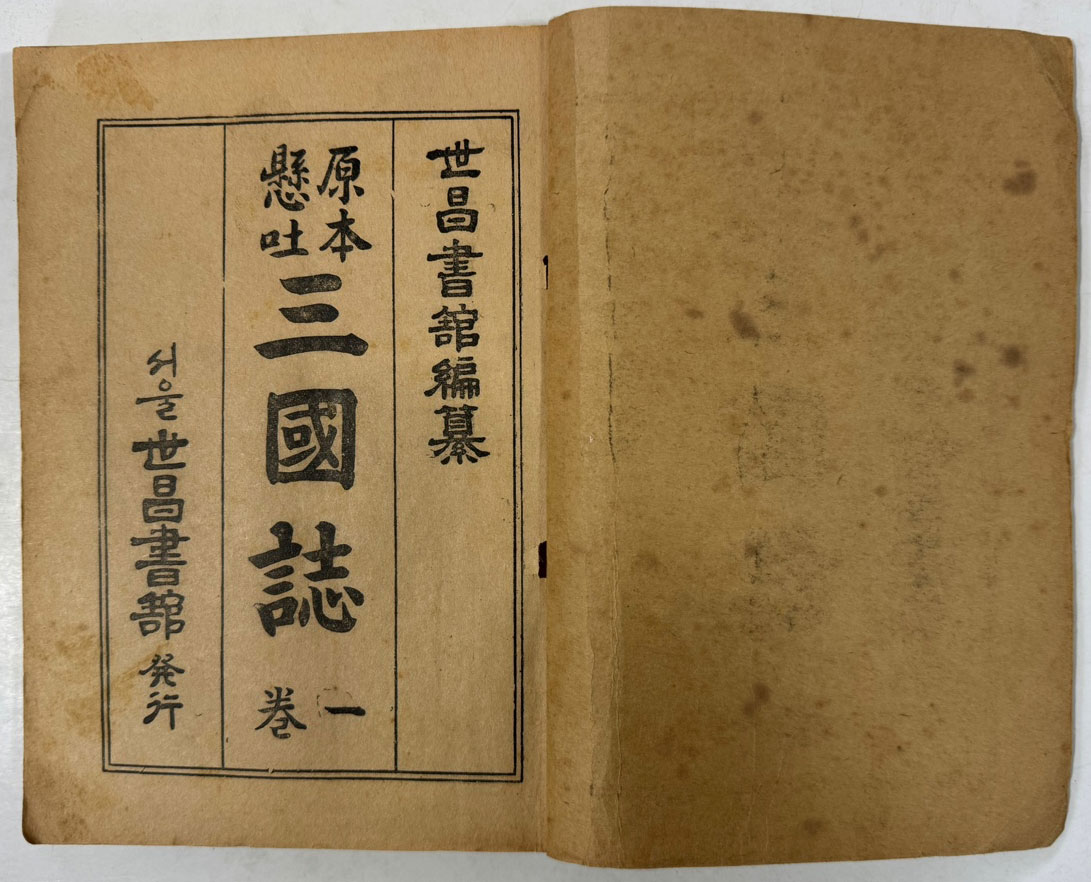 世昌書舘編纂
原本
懸吐
三國誌
一
巻
서울 世昌書舘 発行